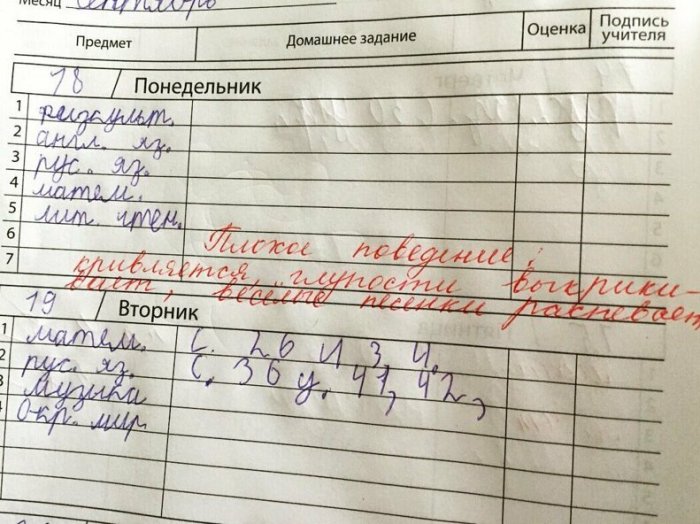 Месяц Сентябрь
Предмет Домашнее задание Оценка Подпись учителя
18 Понедельник
1 физкульт.
2 англ. яз.
3 рус. яз.
4 матем.
5 лит. чтен.
6 Плохое поведение:
7 кривляется, глупости выкрики-
вает, весёлые песенки распевает
19 Вторник
1 матем. с. 26 и 3, 4.
2 рус. яз. с. 36 у. 41, 42,
3 музыка
окр. мир
5
6